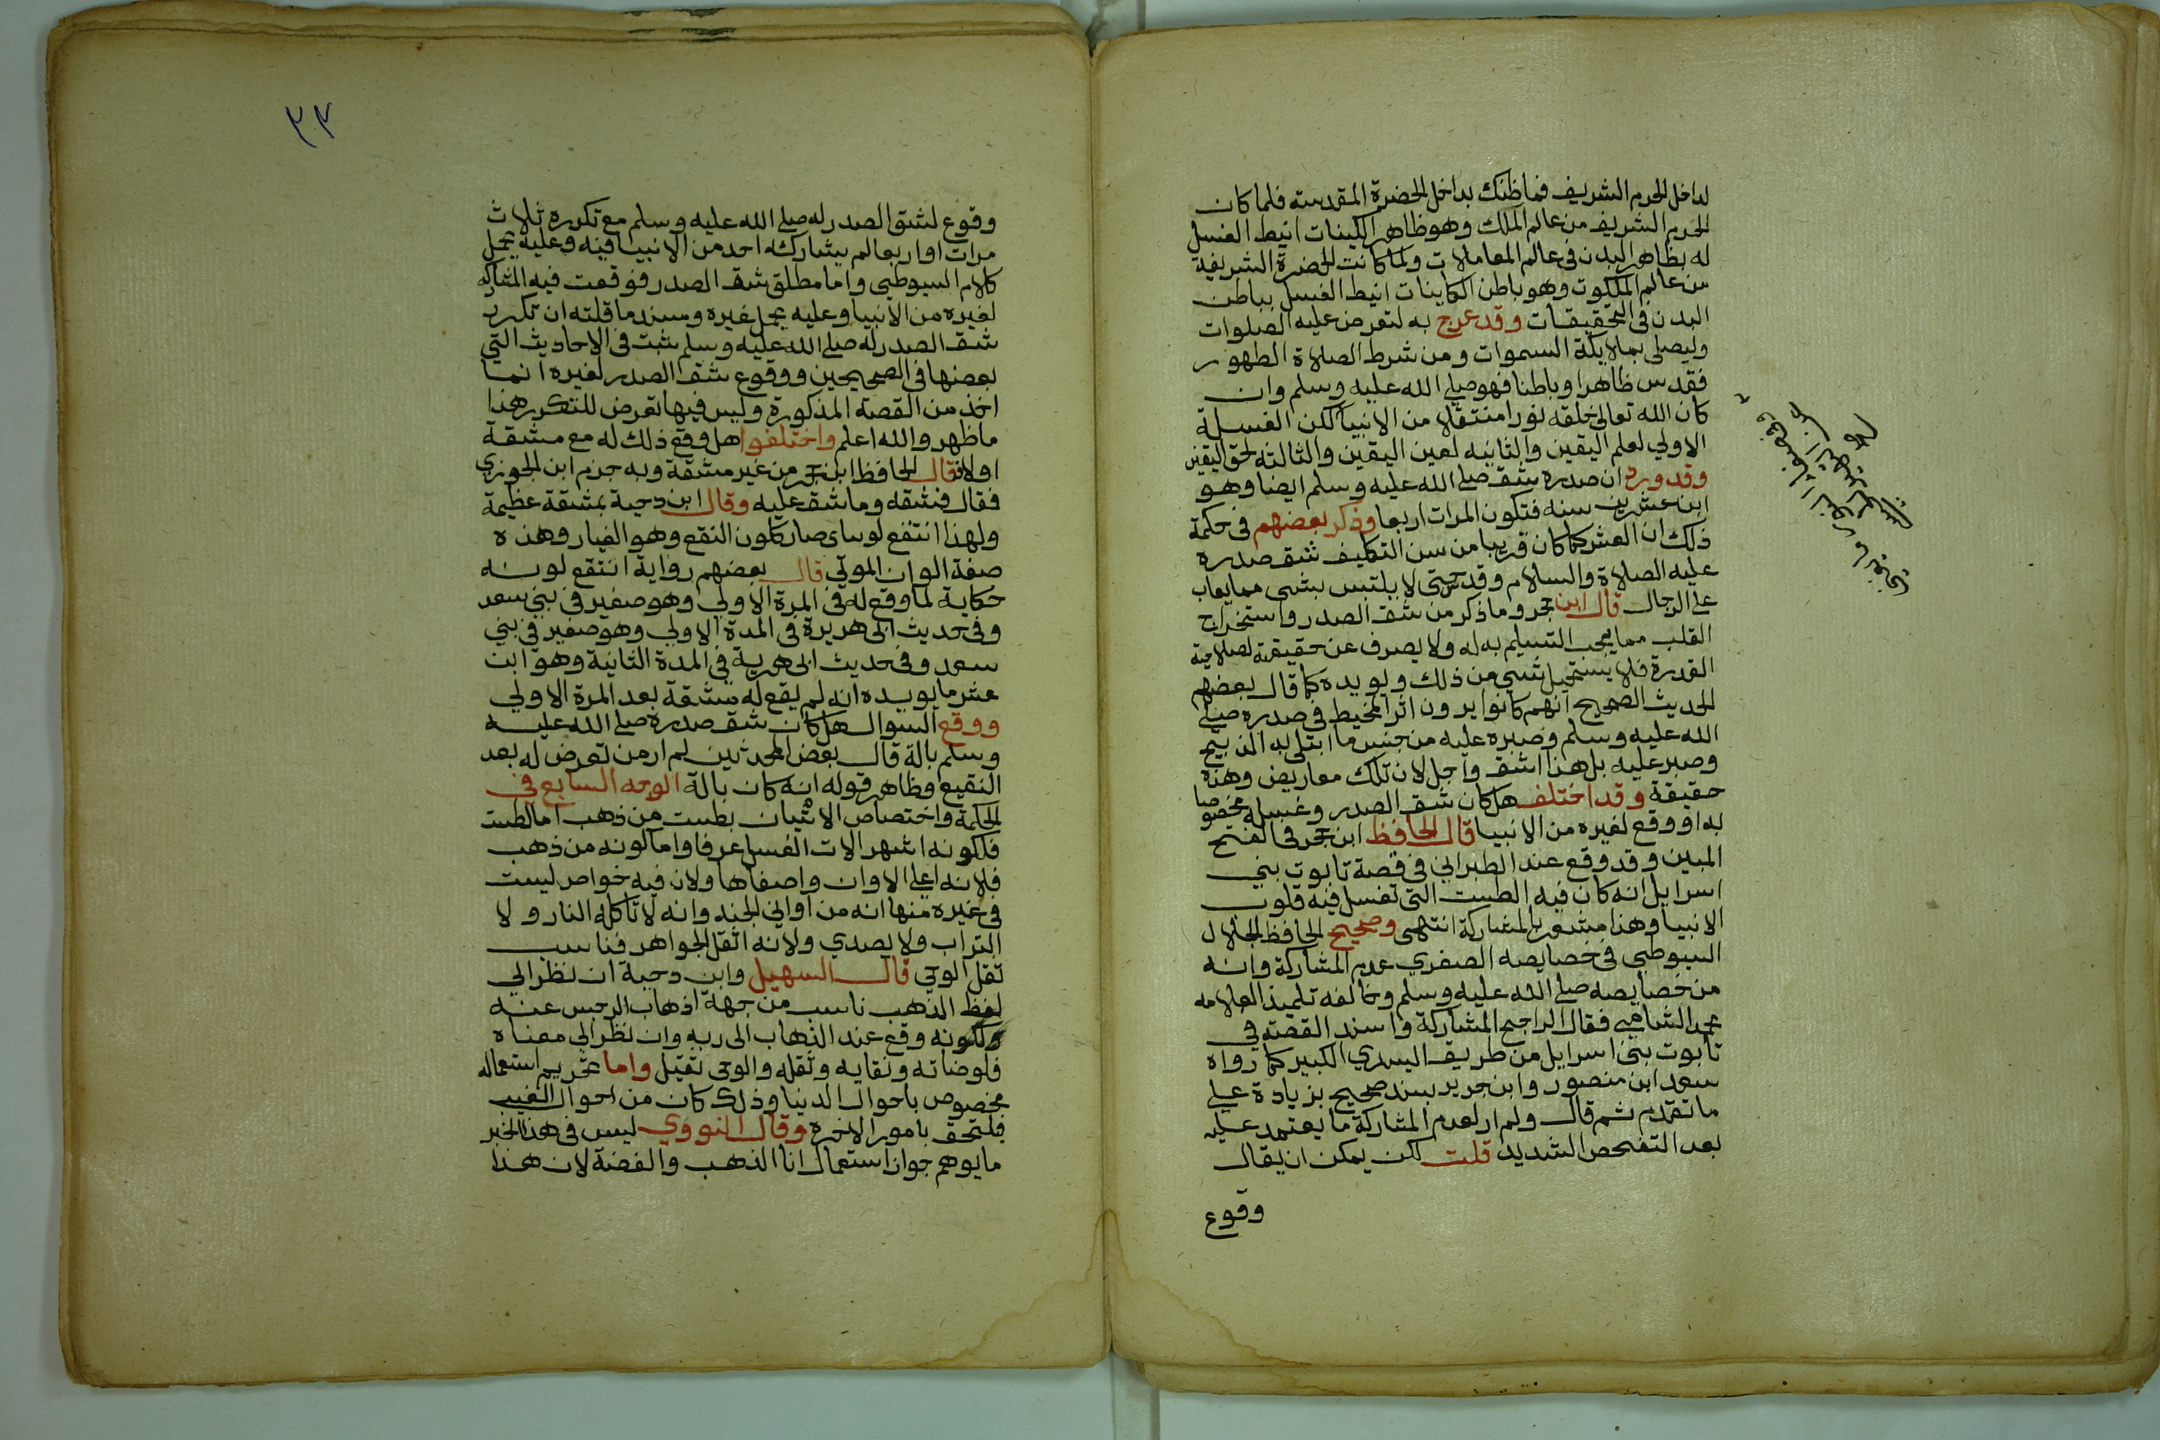 لداخل الحرم الشريف فما ظنك بداخل الحضرة المقدسة فلما كان
الحرم الشريف من عالم الملك وهو ظاهر الكينات انيط الغسل
له بظاهر البدن في عالم المعاملات ولما كانت الحضرة الشريفة
من عالم الملكوت وهو باطن الكاينات انيط الغسل بباطن
البدن في التحقيقات وقد عرج به لتفرض عليه الصلوات
وليصلي بملايكة السموات ومن شرط الصلاة الطهور
فقدس ظاهرا وباطنا فهو صلى الله عليه وسلم وان
كان الله تعالى خلقه نورا منتقلا من الانبيا لكن الغسلة
الاولي لعلم اليقين والثانيه لعين اليقين والثالثه لحق اليقين
وقد ورد ان صدره شق صلى الله عليه وسلم ايضا وهو
ابن عشرين سنه فتكون المرات اربعا وذكر بعضهم في حكمة
ذلك ان العشر كما كان قريبا من سن التكليف شق صدره
عليه الصلاة والسلام وقدس حتى لا يلتبس بشي مما يعاب
على الرجال قال ابن حجر وما ذكر من شق الصدر واستخراج
القلب مما يجب التسليم به له ولا يصرف عن حقيقته لصلاحية
القدرة فلا يستحيل شي من ذلك ويويده كما قال بعضهم
الحديث الصحيح انهم كانوا يرون اثر المخيط في صدره صلى
الله عليه وسلم وصبره عليه من جنس ما ابتلي به الذبيح
وصبر عليه بل هذا اشق واجل لان تلك معاريض وهذه
حقيقة وقد اختلف هل كان شق الصدر وغسله مخصوصا
به او وقع لغيره من الانبيا قال الحافظ ابن حجر في الفتح
المبين وقد وقع عند الطبراني في قصة تابوت بني
اسرايل انه كان فيه الطست التي تغسل فيه قلوب
الانبيا وهذا مشعر بالمشاركة انتهى وصحيح الحافظ الجلال
السيوطي في خصايصه الصغري عدم المشاركة وانه
من خصايصه صلى الله عليه وسلم وخالفه تلميذ العلامه
محمد الشامي فقال الراجح المشاركة واسند القصة في
تابوت بني اسرايل من طريق السدي الكبير كما رواه
سعد ابن منصور وابن جرير بسند صحيح بزيادة على
ما تقدم ثم قال ولم ار لعدم المشاركة ما يعتمد عليه
بعد التفحص الشديد قلت لكن يمكن ان يقال
وقوع
٣٣
وقوع لشق الصدر له صلى الله عليه وسلم مع تكرره ثلاث
مرات او اربعا لم يشاركه احد من الانبيا فيه وعليه يحمل
كلام السيوطي واما مطلق شق الصدر فوقعت فيه المشاركه
لغيره من الانبيا وعليه يحمل غيره وسند ما قلته ان تكرر
شق الصدر له صلى الله عليه وسلم ثبت في الاحاديث التي
بعضها في الصحيحين ووقوع شق الصدر لغيره انما
اخذ من القصة المذكورة وليس فيها تعرض للتكرر هذا
ما ظهر والله اعلم واختلفوا هل وقع ذلك له مع مشقة
اولا فقال الحافظ ابن حجر من غير مشقة وبه جزم ابن الجوزي
فقال فشقه وما شق عليه وقال ابن دحية بمشقة عظيمة
ولهذا انتقع لونه اي صار كلون النقع وهو الغبار وهذه
صفة الوان الموتي قال بعضهم رواية انتقع لونه
حكاية لما وقع له في المرة الاولي وهو صغير في بني سعد
وفي حديث ابي هريرة في المدة الاولي وهو صغير في بني
سعد وفي حديث ابي هرية في المدة الثانية وهو ابن
عشر ما يويده انه لم يقع له مشقة بعد المرة الاولي
ووقع السوال هل كان شق صدره صلى الله عليه
وسلم بالة قال بعض المحدثين لم ار من تعرض له بعد
النقيع وظاهر قوله انه كان بالة الوجه السابع في
الحكمة واختصاص الاتيان بطست من ذهب اما الطست
فلكونه اشهر الات الغسل عرفا واما كونه من ذهب
فلانه اعلى الاوان واصفاها ولان فيه خواص ليست
في غيره منها انه من اواني الجنه وانه لا تاكله النار ولا
التراب ولا يصدي ولانه اثقل الجواهر فناسب
ثقل الوحي قال السهيلي وابن دحية ان نظر الي
لفظ الذهب ناسب من جهة اذهاب الرجس عنه
ولكونه وقع عند الذهاب الى ربه وان نظر الي معناه
فلوضاته ونقايه وثقله والوحي ثقيل واما تحريم استعماله
مخصوص باحوال الدنيا وذلك كان من احوال الغيب
فيلتحق بامور الاخره وقال النووي ليس في هذا الخبر
ما يوهم جواز استعمال انا الذهب والفضة لان هذا